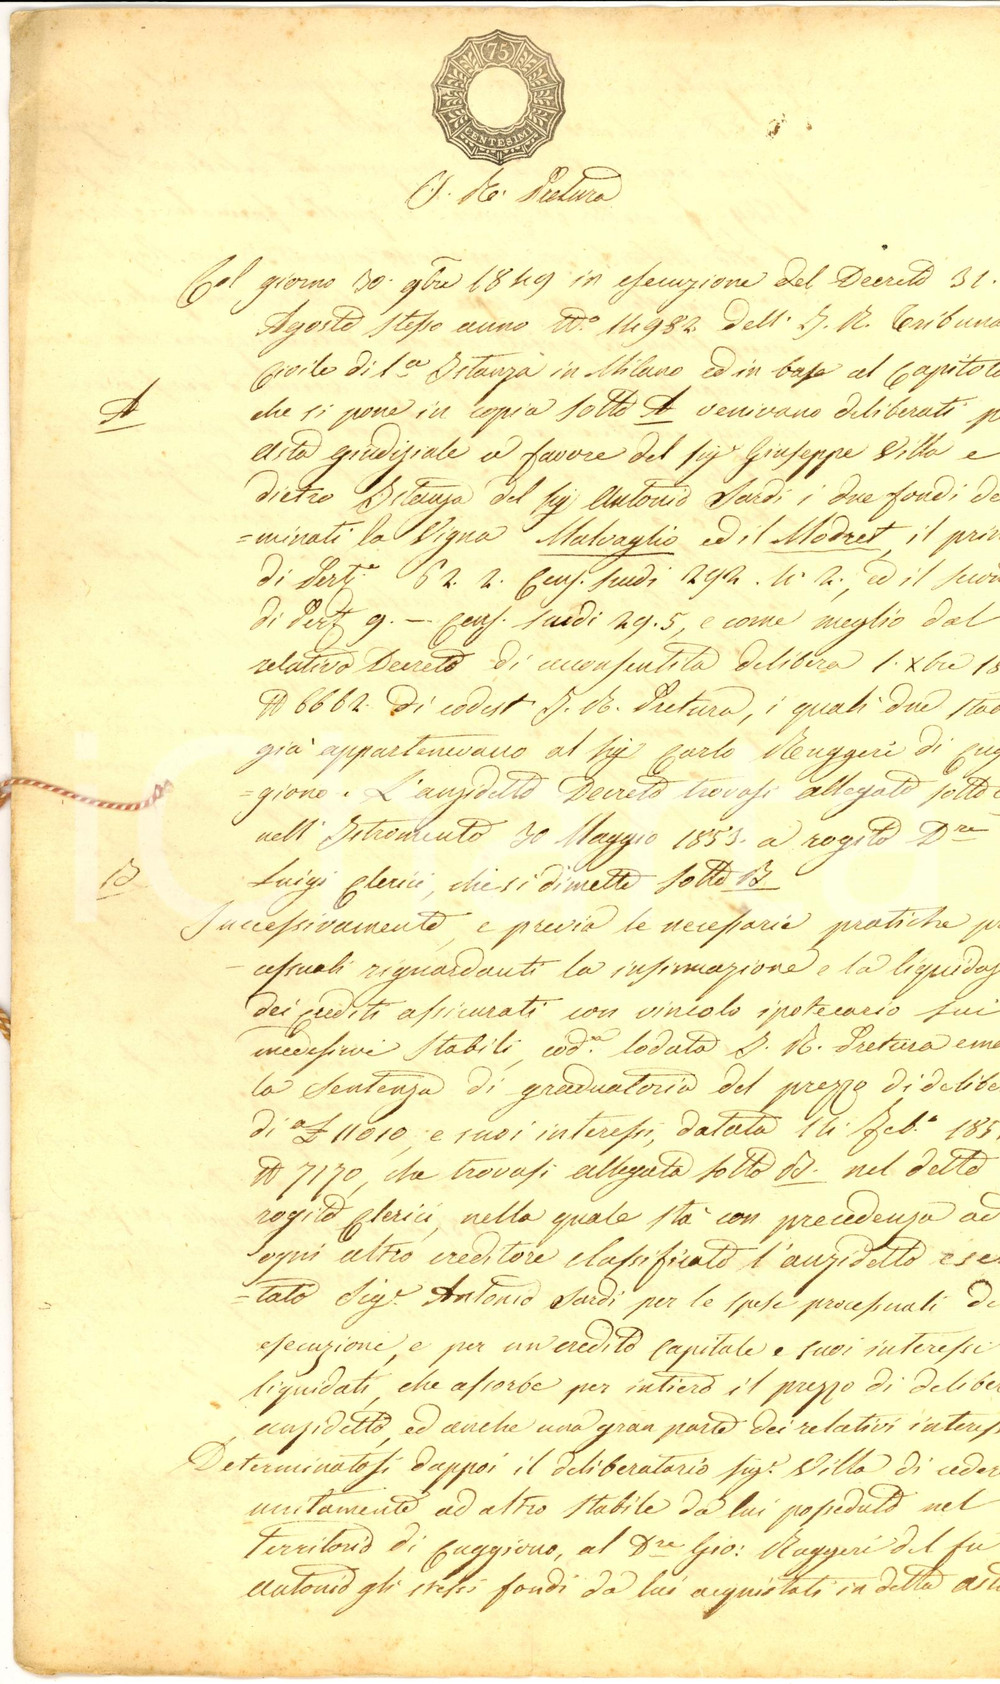 75
CENTESIMI
I. R. Pretura
Col giorno 30. 9bre 1849 in esecuzione del Decreto 31.
Agosto stesso anno N.o 14982 dell' I. R. Tribuna
Civile di 1.a Istanza in Milano ed in base al Capitola
A
che si pone in copia sotto A venivano deliberati
Asta giudiziale a favore del Sig.r Giuseppe Villa e
dietro Istanza del Sig. Antonio Sardi i due fondi de
=minati la Vigna Malvaglio ed il Modret, il prim
di Pert.e 62. 2. Cens. Scudi 292. 4. 2., ed il secon
di Pert. 9. — Cens. Scudi 29. 5, e come meglio dal
relativo Decreto di acconsentita delibera 1. Xbre 18
N 6662. di codest' I. R. Pretura, i quali due stab
già appartenevano al Sig. Carlo Ruggeri di Cug
=giono. L'anzidetto Decreto trovasi allegato sotto
nell' Istromento 30 Maggio 1853. a rogito Dre
B
Luigi Clerici, che si dimette sotto B
Successivamente, e previa le necessarie pratiche pr
=cessuali riguardanti la insinuazione e la liquidaz
dei crediti assicurati con vincolo ipotecario sui
medesimi stabili, cod.a lodata I. R. Pretura eme
la Sentenza di graduatoria del prezzo di delibe
di a£ 11010, e suoi interessi, datata 14 Feb.o 185
N 7170, che trovasi allegata sotto B. nel detto
rogito Clerici, nella quale sta con precedenza ad
ogni altro creditore classificato l'anzidetto ese
=tato Sig.r Antonio Sardi per le spese processuali de
esecuzione, e per un credito Capitale e suoi interessi
liquidati, che assorbe per intiero il prezzo di deliber
anzidetto, ed anche una gran parte dei relativi interess
Determinatosi dappoi il deliberatario Sig.r Villa di ceder
unitamente ad altro stabile da lui posseduto nel
Territorio di Cuggiono, al Dre Gio: Ruggeri del fu
Antonio gli stessi fondi da lui acquistati in detta asta